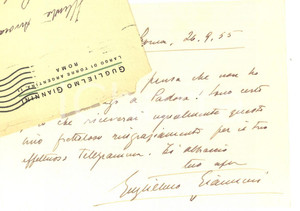 GUGLIELMO GIANNINI
LARGO DI TORRE ARGENTINA 11
ROMA
Roma, 26.9.55
pensa che non ho
a Padova! Sono certo
che riceverai ugualmente questo
mio frettoloso ringraziamento per il tuo
affettuoso Telegramma. Ti abbraccio
tuo
Guglielmo Giannini